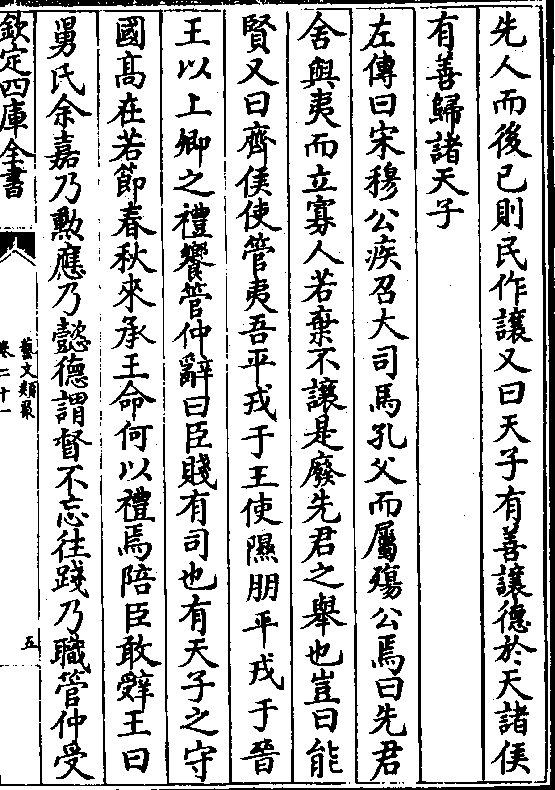 先人而後己則民作讓又曰天子有善讓德於天諸侯
有善歸諸天子
左傳曰宋穆公疾召大司馬孔父而屬殤公焉曰先君
舍與夷而立寡人若棄不讓是廢先君之舉也豈曰能
賢又曰齊侯使管夷吾平戎于王使隰朋平戎于晉
王以上卿之禮饗管仲辭曰臣賤有司也有天子之守
國高在若節春秋來承王命何以禮焉陪臣敢辭王曰
舅氏余嘉乃勲應乃懿德謂督不忘往踐乃職管仲受
欽定四庫全書
藝文類聚
卷二十一
五